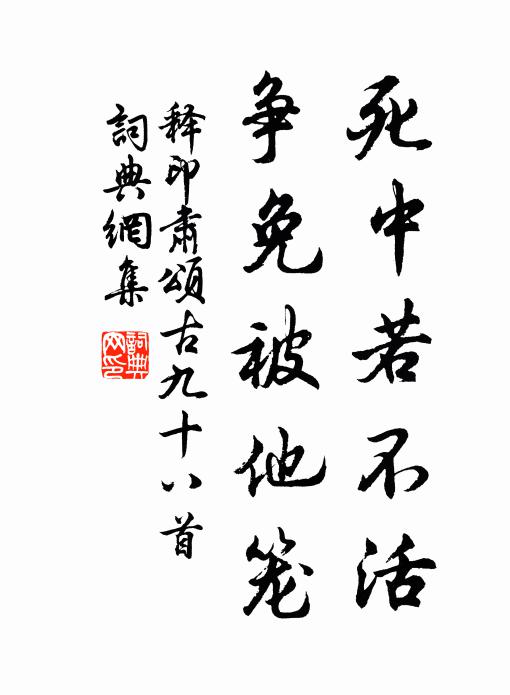 死中若不活
争免被他笼
释印肃颂古九十八首
詞典網集
詞典网印